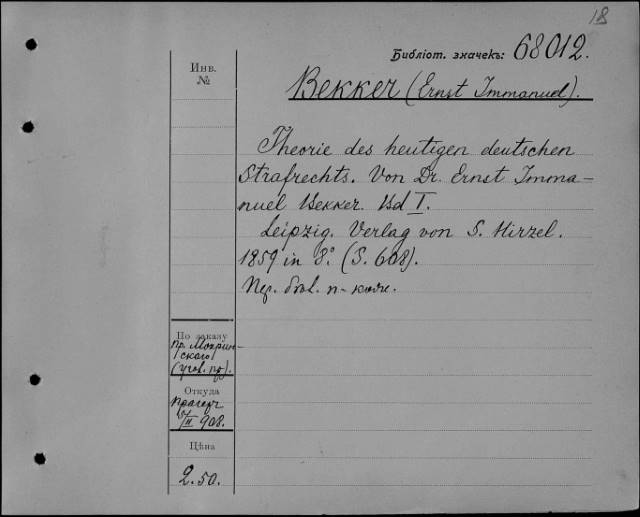 18
Библіот. значекъ: 68012.
Инв.
№
Bekker (Ernst Immanuel).
Theorie des heutigen deutschen
Strafrechts. Von Dr. Ernst Imma-
nuel Bekker. Bd I.
Leipzig. Verlag von S. Hirzel.
1859 in 8°. (S. 608).
Пер.
По заказу
пр.
ского
Откуда
Прагеръ
II 908.
Цѣна
2.50.